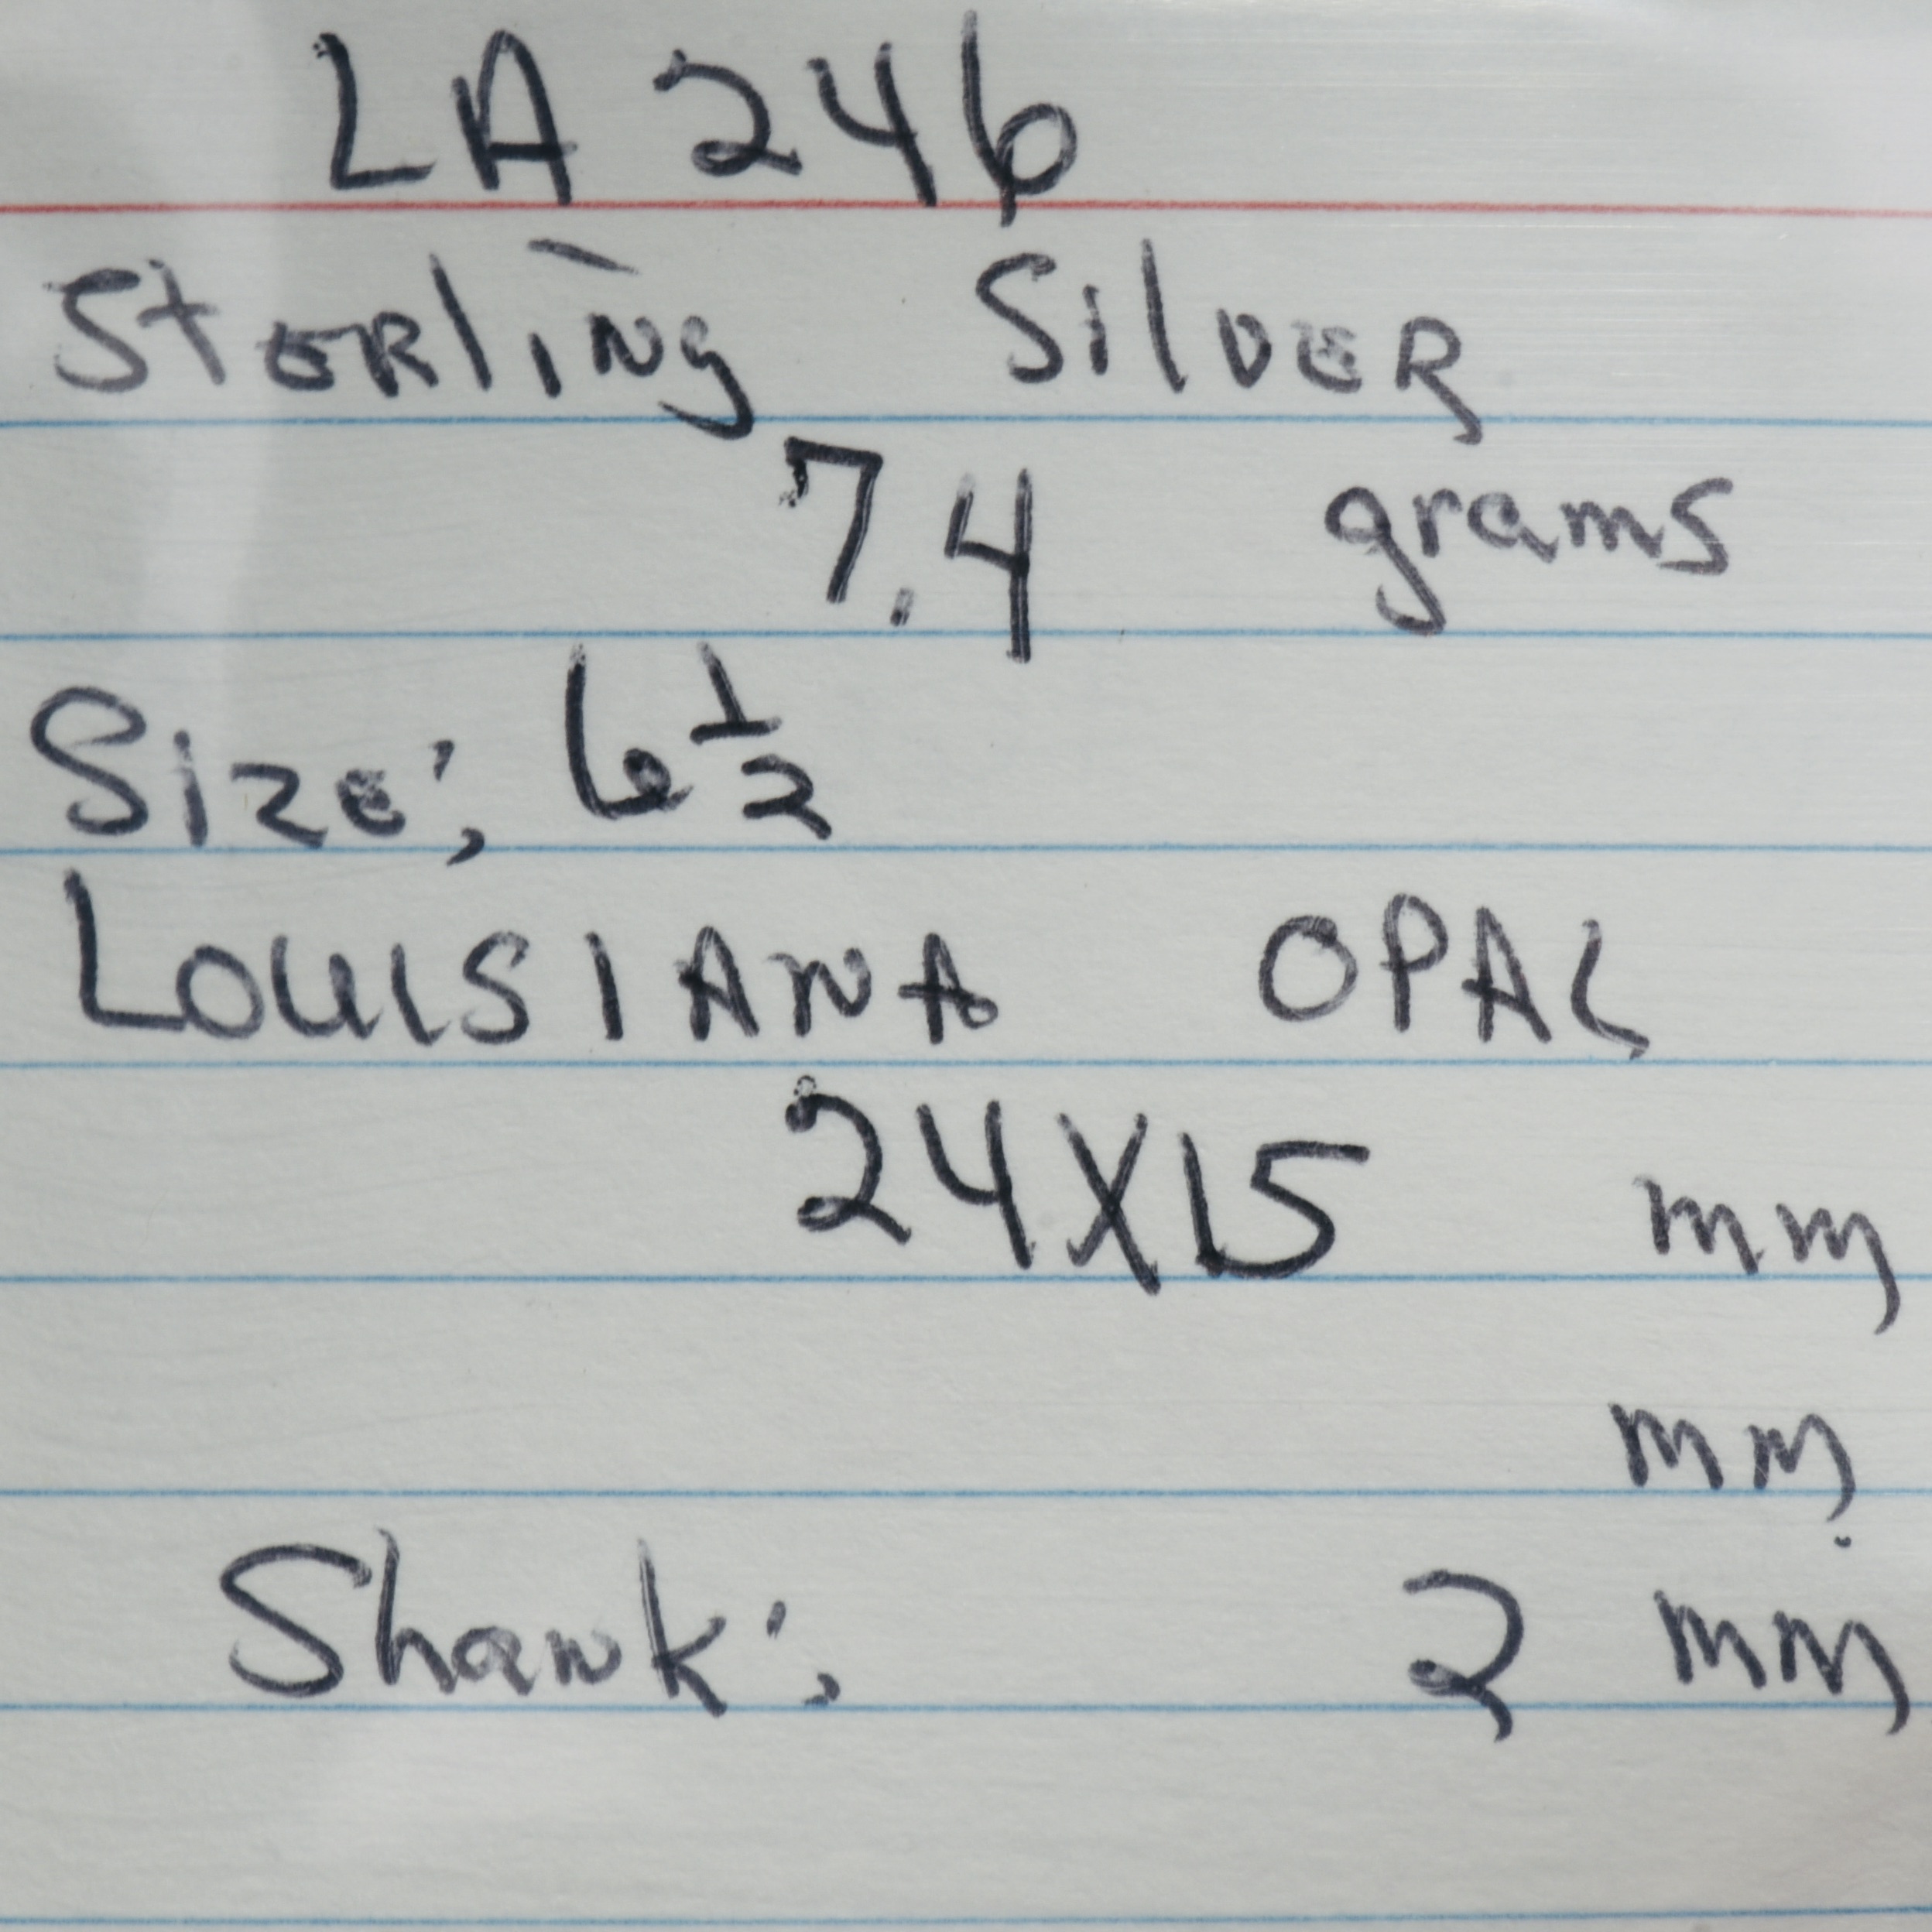 LA 246
Sterling Silver
7.4 grams
Size: 6 1/2
LOUISIANA OPAL
24X15 mm
mm
Shank: 2 mm